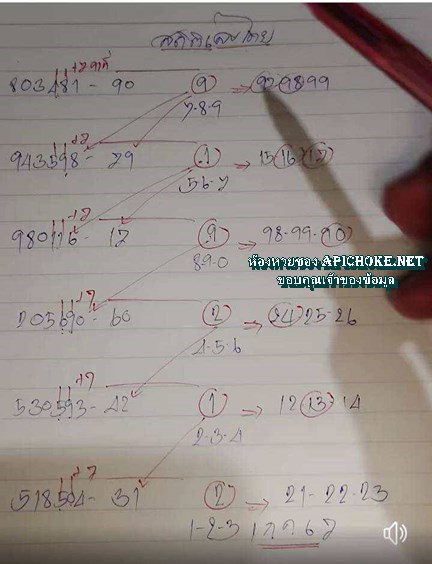 สถิติเลขไทย
+7 คงที่
803481 - 90 9 → 97-98-99
7-8-9
+7
943598 - 79 1 → 15 16 17
5-6-7
+7
980116 - 17 9 → 98-99-90
8-9-0
ห้องหวยของ APICHOKE.NET
ขอบคุณเจ้าของข้อมูล
+7
205690 - 60 2 → 24 25-26
4-5-6
+7
530593 - 42 1 → 12 13 14
2-3-4
+7
518504 - 31 2 → 21-22-23
1-2-3 17.ค.67